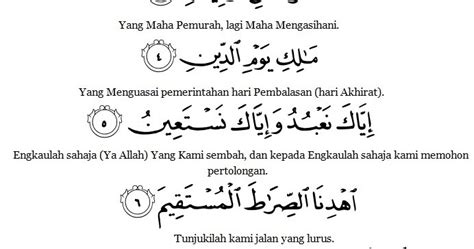 Yang Maha Pemurah, lagi Maha Mengasihani.
مَـٰلِكِ يَوْمِ ٱلدِّينِ ٤
Yang Menguasai pemerintahan hari Pembalasan (hari Akhirat).
إِيَّاكَ نَعْبُدُ وَإِيَّاكَ نَسْتَعِينُ ٥
Engkaulah sahaja (Ya Allah) Yang Kami sembah, dan kepada Engkaulah sahaja kami memohon
pertolongan.
ٱهْدِنَا ٱلصِّرَٰطَ ٱلْمُسْتَقِيمَ ٦
Tunjukilah kami jalan yang lurus.